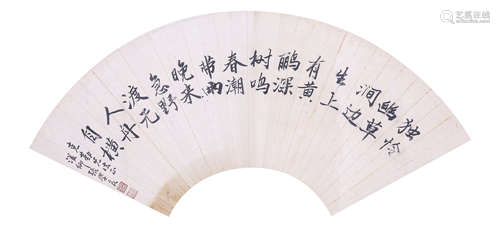 艺狐在线
独怜
幽草
涧边
生上
有黄
鹂深
树鸣
春潮
带雨
晚来
急野
渡无
人舟
自横